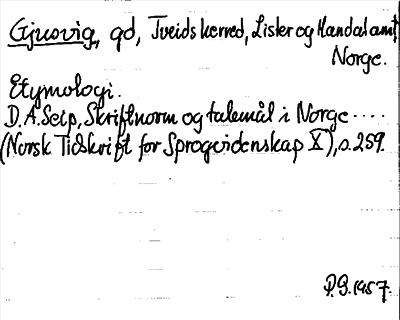 Gjusvig, gd, Tveids herred, Lister og Mandal amt,
Norge.
Etymologi.
D. A. Seip, Skriftnorm og talemål i Norge ....
(Norsk Tidskrift for Sprogvidenskap X), s. 259.
P.G. 1957.